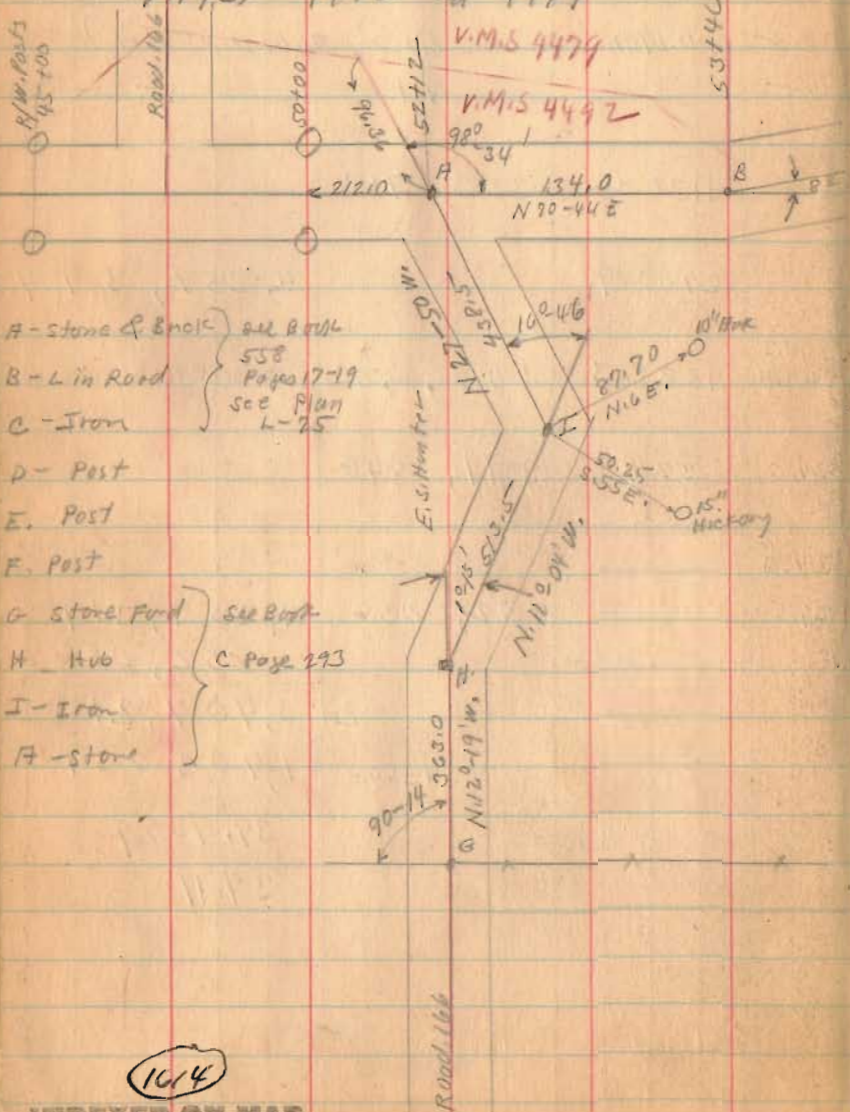 R/W. Posts
45+00
Road.166
50+00
52+12
V.M.S 9479
V.M.S 4492
53+40
98°-34'
A
← 212.0
134.0
B
N 70-44 E
N.27-50 W.
458.5
10°-46'
A-Stone & Brick
B-L in Road
C-Iron
see Book
558
Pages 17-19
see Plan
L-25
D- Post
E. Post
F. Post
G Stone Fund
H Hub
I-Iron
A-stone
See Book
C Page 293
E.S. Hunter
87.70
N.6 E.
I
50.25
S.55 E.
15"
Hickory
513.5
N.11°04'W.
H
363.0
N.12°-19'W.
90-14
G
Road.166
1614